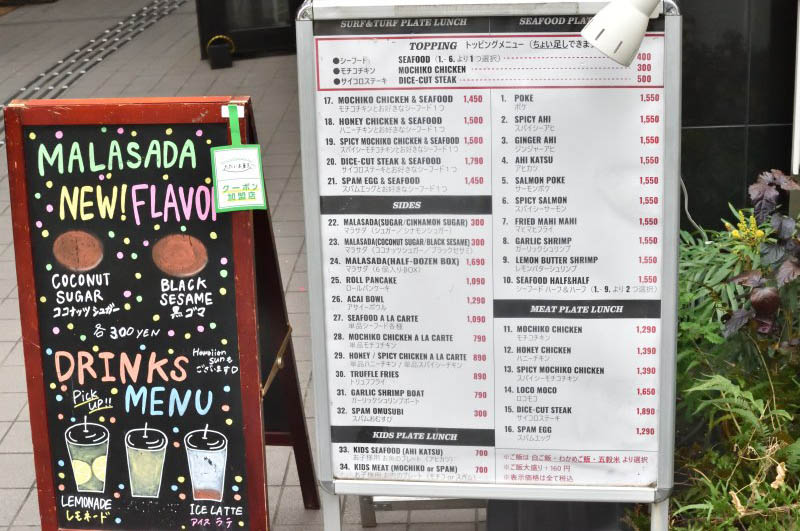 MALASADA
NEW! FLAVO
クーポン
加盟店
COCONUT
SUGAR
ココナッツシュガー
BLACK
SESAME
黒ゴマ
各300YEN
DRINKS
MENU
Hawaiian
Sunも
ございます
Pick
UP!!
LEMONADE
レモネード
ICE LATTE
アイスラテ
SURF&TURF PLATE LUNCH
SEAFOOD PLA
TOPPING トッピングメニュー (ちょい足しできま
●シーフード SEAFOOD (1.- 6. より1つ選択) 400
●モチコチキン MOCHIKO CHICKEN 300
●サイコロステーキ DICE-CUT STEAK 500
17. MOCHIKO CHICKEN & SEAFOOD 1,450
モチコチキンとお好きなシーフード1つ
18. HONEY CHICKEN & SEAFOOD 1,500
ハニーチキンとお好きなシーフード1つ
19. SPICY MOCHIKO CHICKEN & SEAFOOD 1,500
スパイシーモチコチキンとお好きなシーフード1つ
20. DICE-CUT STEAK & SEAFOOD 1,790
サイコロステーキとお好きなシーフード1つ
21. SPAM EGG & SEAFOOD 1,450
スパムエッグとお好きなシーフード1つ
SIDES
22. MALASADA(SUGAR/CINNAMON SUGAR) 300
マラサダ (シュガー/シナモンシュガー)
23. MALASADA(COCONUT SUGAR/BLACK SESAME) 300
マラサダ (ココナッツシュガー/ブラックセサミ)
24. MALASADA(HALF-DOZEN BOX) 1,690
マラサダ (6個入りBOX)
25. ROLL PANCAKE 1,090
ロールパンケーキ
26. ACAI BOWL 1,290
アサイーボウル
27. SEAFOOD A LA CARTE 1,090
単品シーフード各種
28. MOCHIKO CHICKEN A LA CARTE 790
単品モチコチキン
29. HONEY / SPICY CHICKEN A LA CARTE 890
単品ハニーチキン / 単品スパイシーチキン
30. TRUFFLE FRIES 890
トリュフフライ
31. GARLIC SHRIMP BOAT 790
ガーリックシュリンプボート
32. SPAM OMUSUBI 300
スパムおむすび
KIDS PLATE LUNCH
33. KIDS SEAFOOD (AHI KATSU) 700
お子様用 お魚のプレート (アヒカツ)
34. KIDS MEAT (MOCHIKO or SPAM) 700
お子様用 お肉のプレート (モチコ or スパム)
1. POKE 1,550
ポケ
2. SPICY AHI 1,550
スパイシーアヒ
3. GINGER AHI 1,550
ジンジャーアヒ
4. AHI KATSU 1,550
アヒカツ
5. SALMON POKE 1,550
サーモンポケ
6. SPICY SALMON 1,550
スパイシーサーモン
7. FRIED MAHI MAHI 1,550
マヒマヒフライ
8. GARLIC SHRIMP 1,550
ガーリックシュリンプ
9. LEMON BUTTER SHRIMP 1,550
レモンバターシュリンプ
10. SEAFOOD HALF&HALF 1,550
シーフード ハーフ&ハーフ (1.- 9. より2つ選択)
MEAT PLATE LUNCH
11. MOCHIKO CHICKEN 1,290
モチコチキン
12. HONEY CHICKEN 1,390
ハニーチキン
13. SPICY MOCHIKO CHICKEN 1,390
スパイシーモチコチキン
14. LOCO MOCO 1,650
ロコモコ
15. DICE-CUT STEAK 1,890
サイコロステーキ
16. SPAM EGG 1,290
スパムエッグ
※ご飯は 白ご飯・わかめご飯・五穀米 より選択
※ご飯大盛り・160円
※表示価格は全て税込